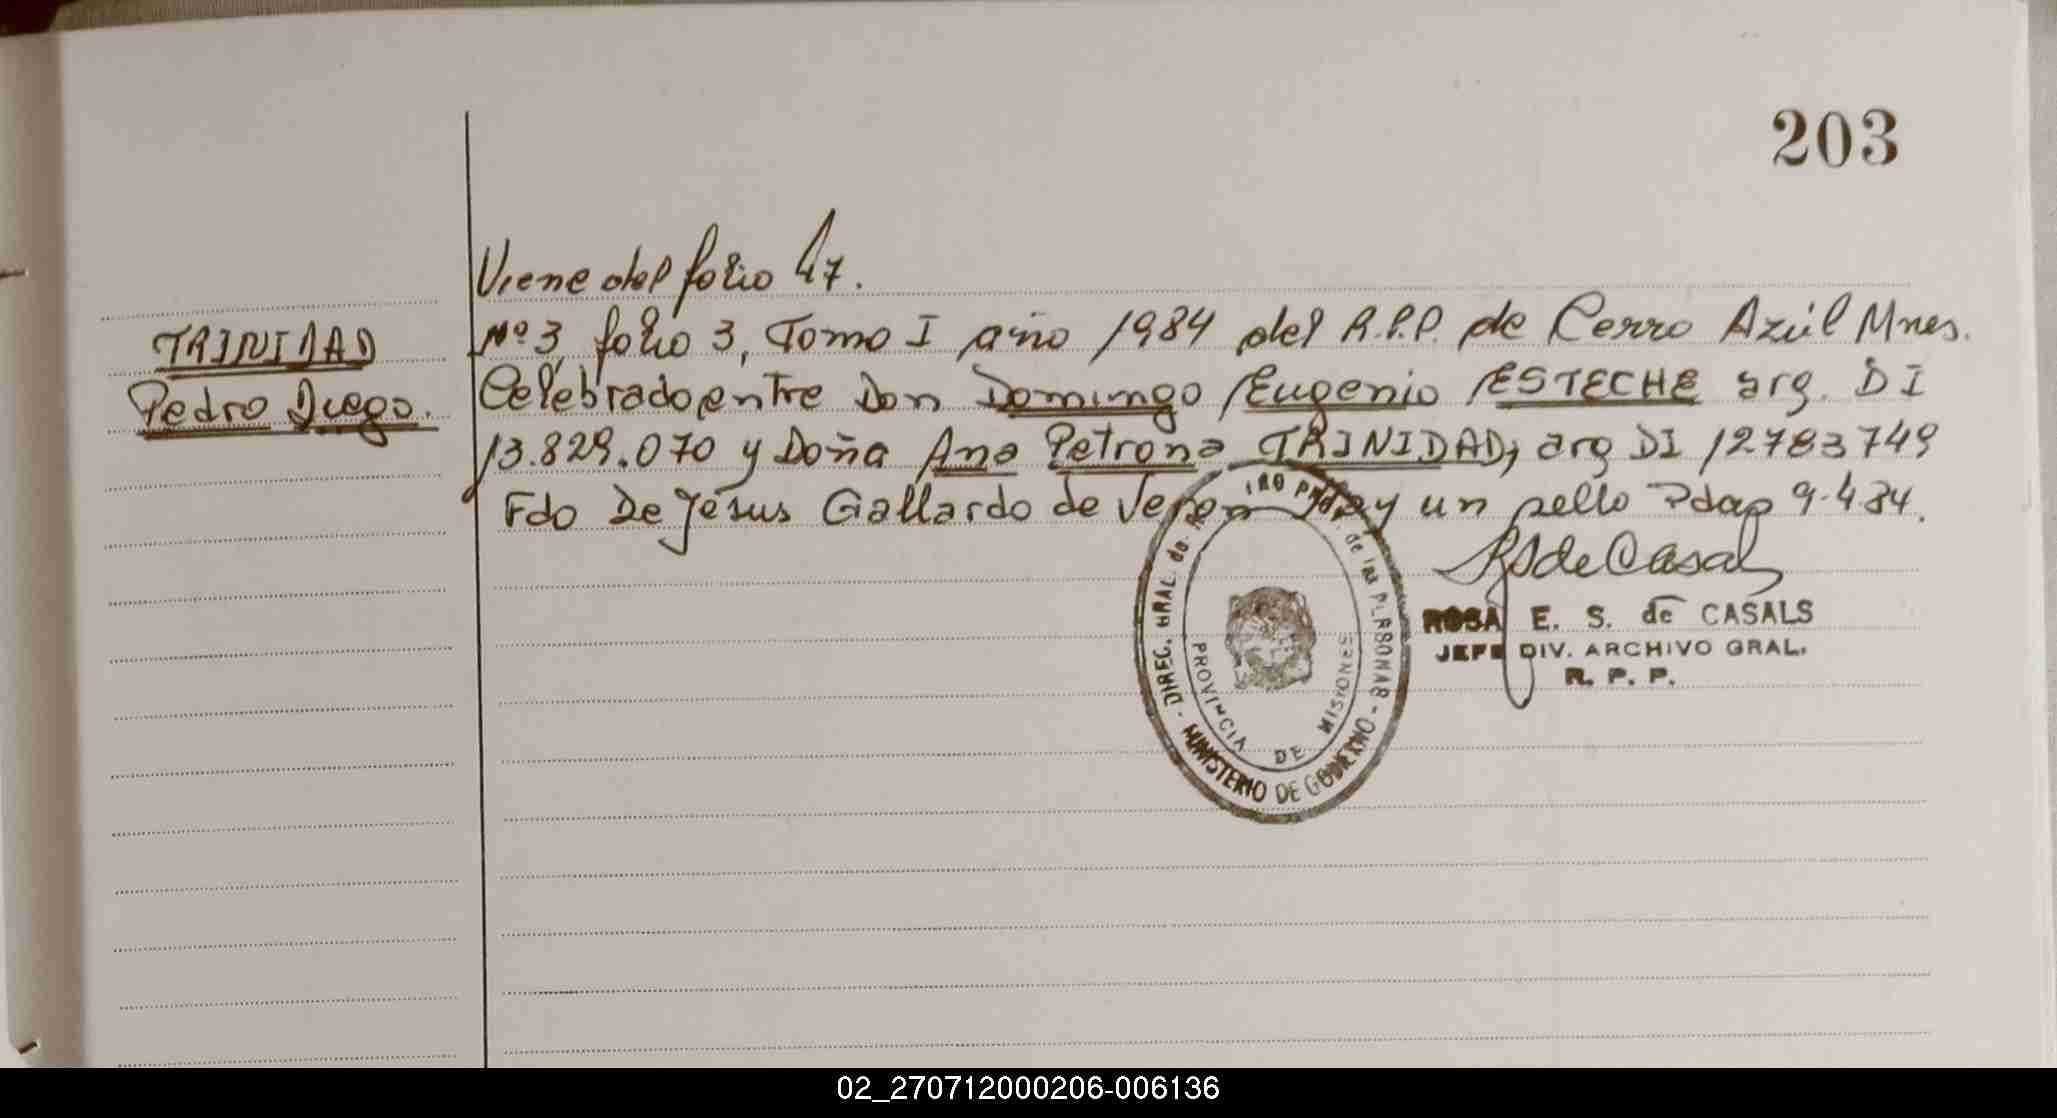 203
Viene del folio 47.
TRINIDAD
Pedro Diego.
Nº 3, folio 3, Tomo I año 1984 del R.P.P. de Cerro Azúl Mnes.
Celebrado entre Don Domingo Eugenio ESTECHE arg. DI
13.829.070 y Doña Ana Petrona TRINIDAD, arg DI 12783749
Fdo De Jesus Gallardo de Veron y un sello Pdas 9-4-84.
ROSA E. S. de CASALS
JEFE DIV. ARCHIVO GRAL.
R. P. P.
DIREC. GRAL. de las PERSONAS - MINISTERIO DE GOBIERNO -
PROVINCIA DE MISIONES
02_270712000206-006136